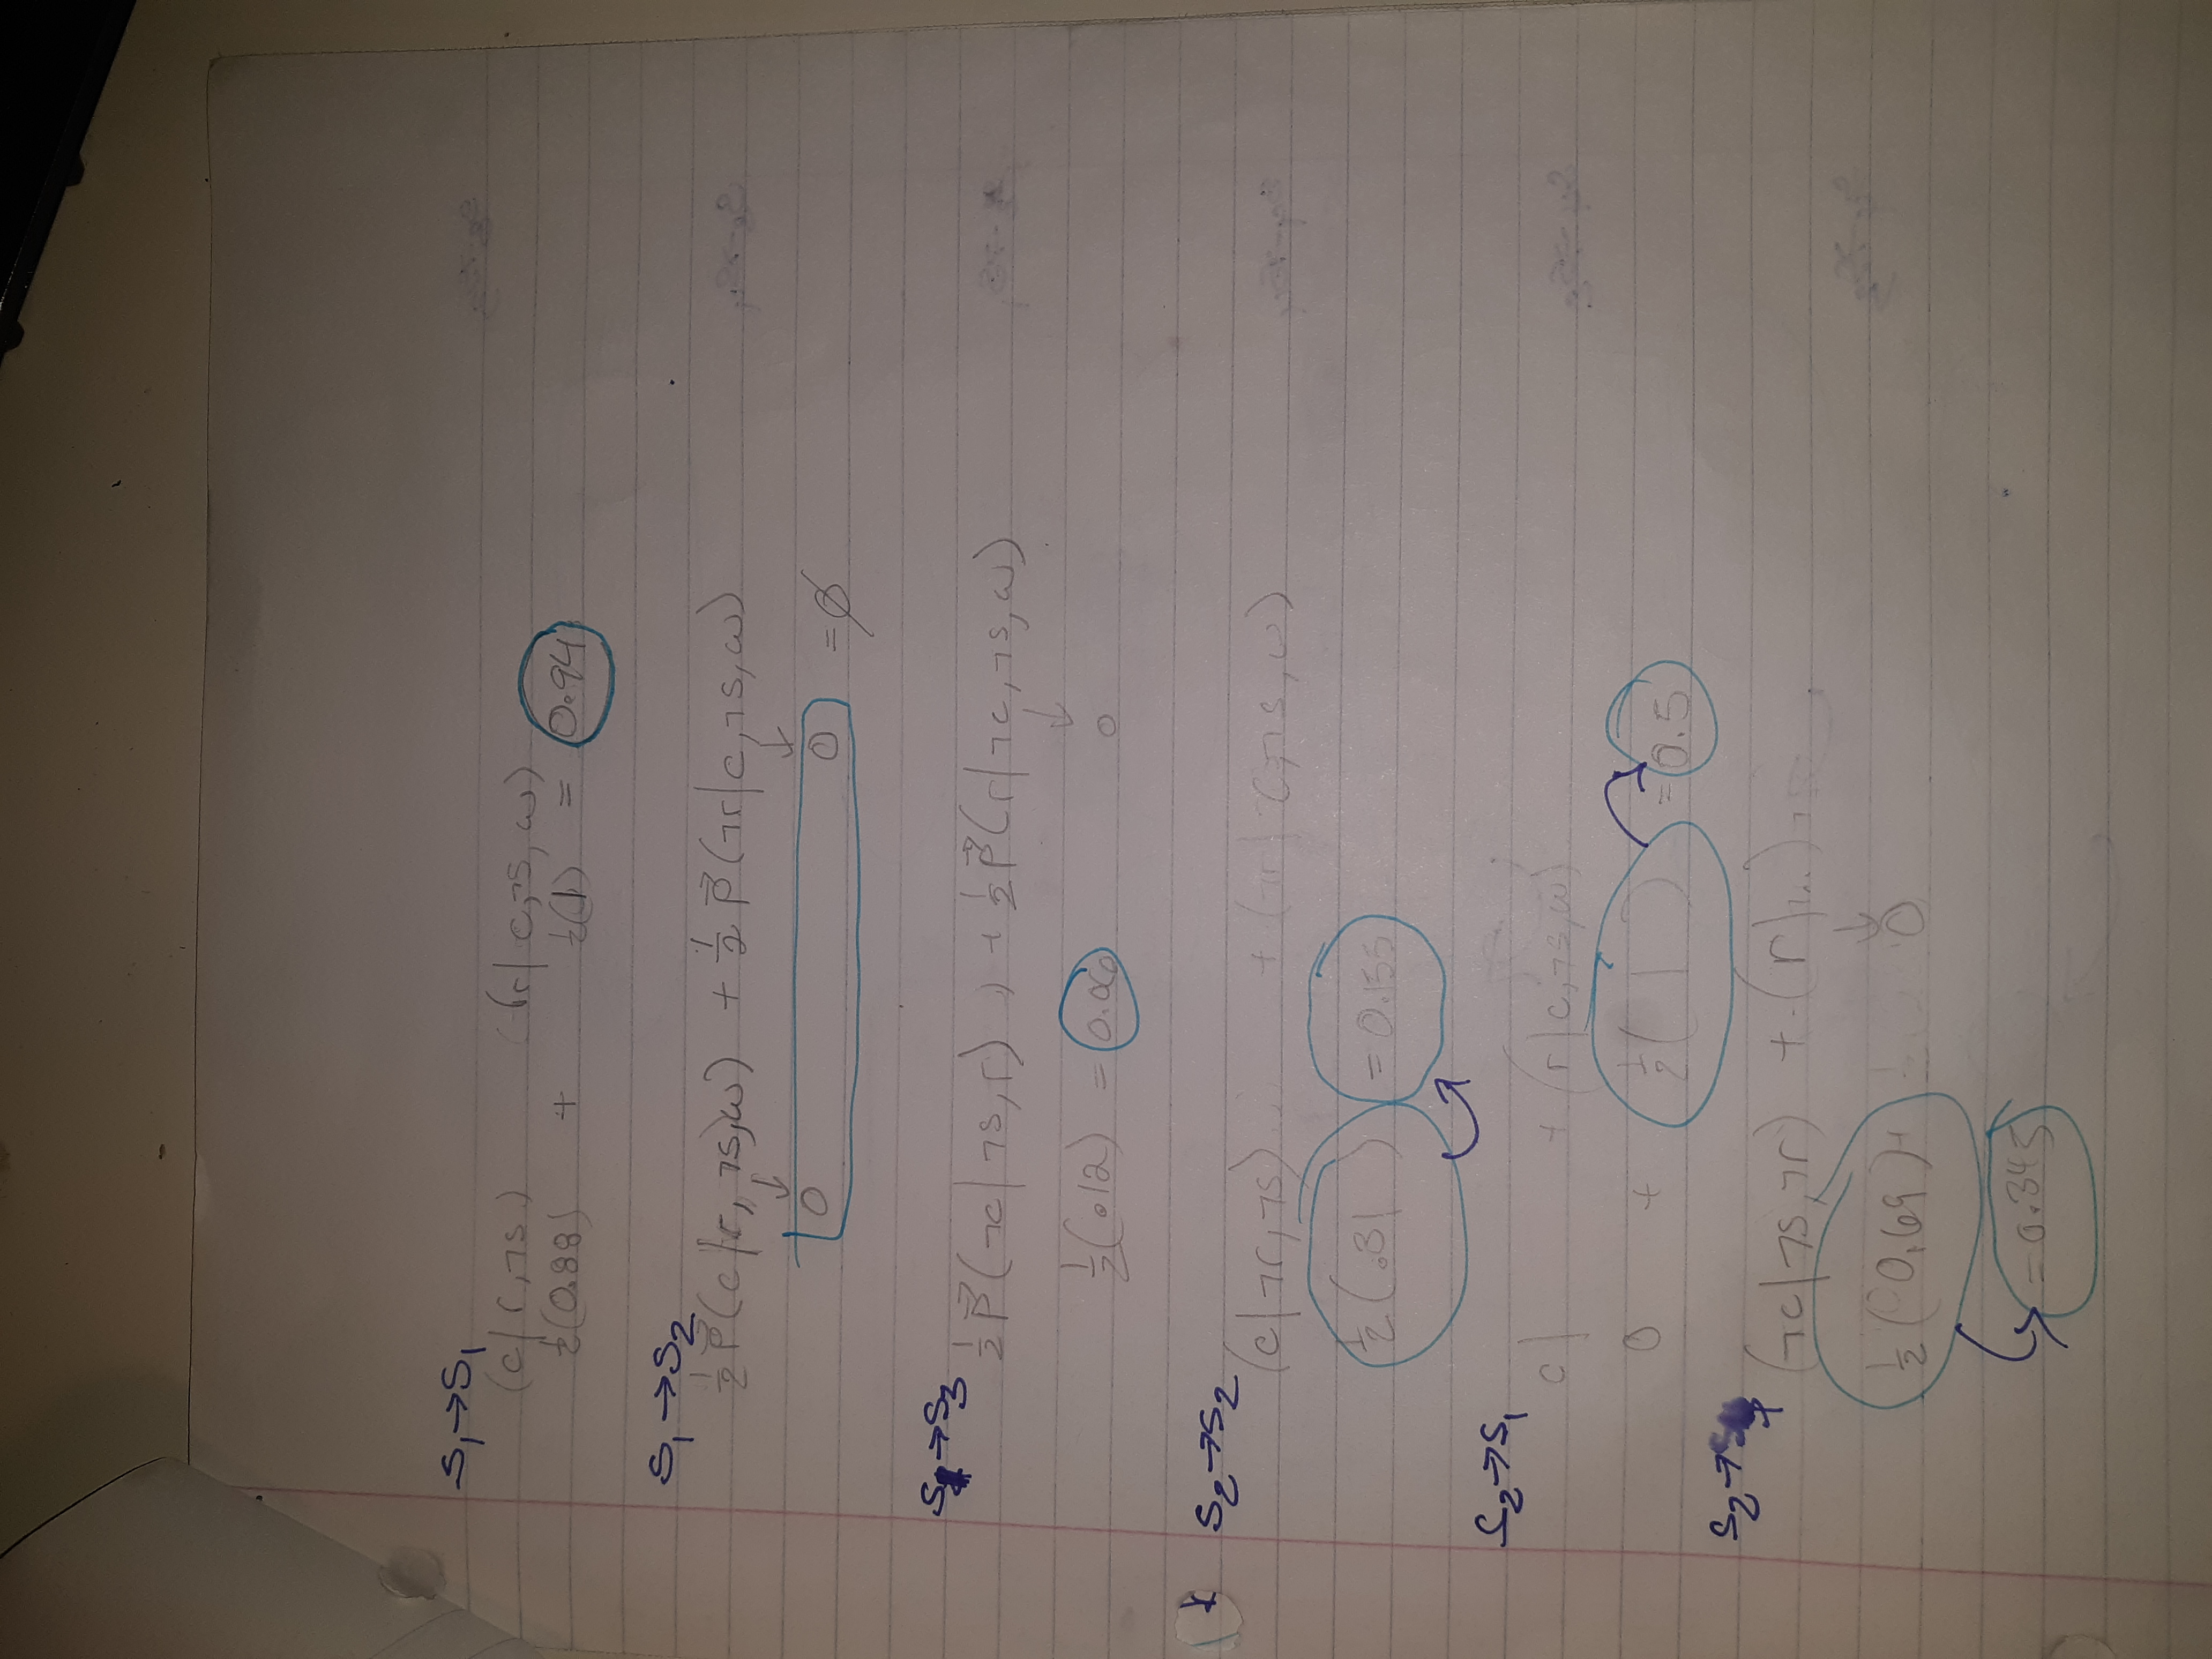 S₁→S₁
(c|r,¬s) (r|c,¬s,w)
½(0.88) + ½(1) = 0.94
S₁→S₂
½P⃗(c|r,¬s,w) + ½P⃗(¬r|c,¬s,w)
↓ ↓
0 0 = ∅
S₁→S₃
½P⃗(¬c|¬s,r) + ½P⃗(r|¬c,¬s,w)
↓
½(.12) = 0.06 0
S₂→S₂
(c|¬r,¬s) + (¬r|c,¬s,w)
½(.31) = 0.155
S₂→S₁
c| + (r|c,¬s,w)
0 + ½(1) = 0.5
S₂→
(¬c|¬s,¬r) + (r|...)
↓
½(0.69)+ 0
= 0.345